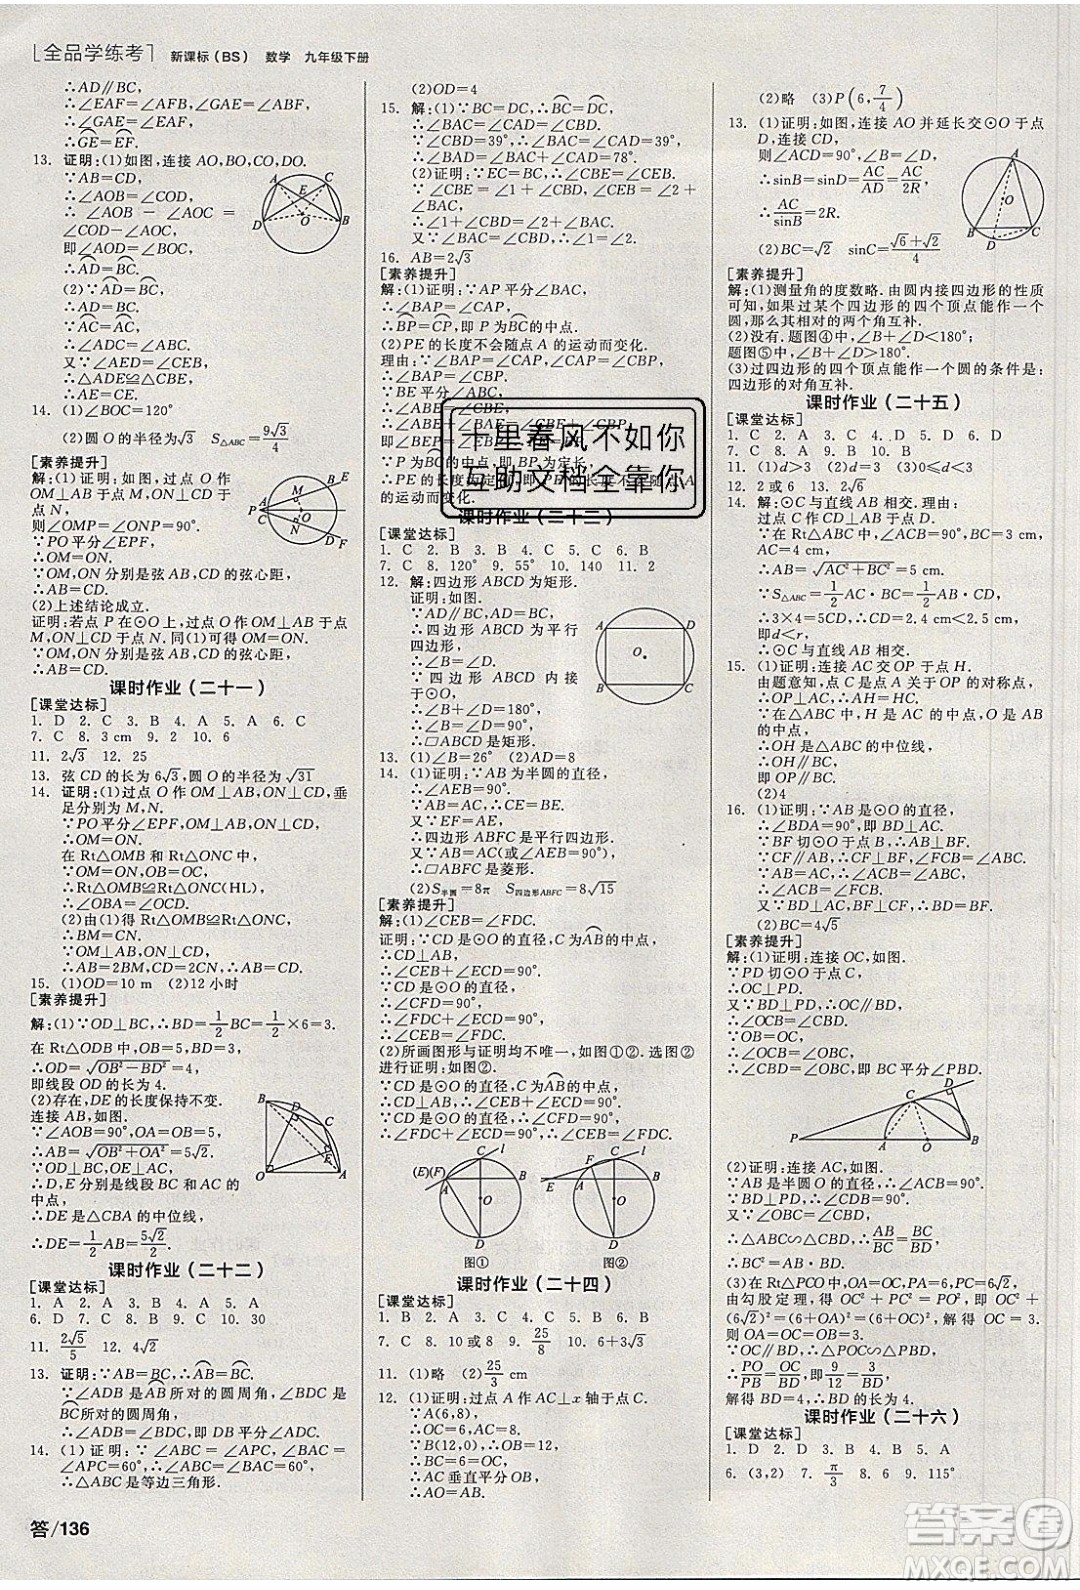 全品学练考 新课标（BS） 数学 九年级下册
∴AD∥BC,
∴∠EAF=∠AFB,∠GAE=∠AFB,
∴∠GAE=∠EAF,
∴GE=EF.
13. 证明:(1)如图,连接AO,BO,CO,DO.
∵AB=CD,
∴∠AOB=∠COD,
∴∠AOB－∠AOC=
∠COD－∠AOC,
即∠AOD=∠BOC,
∴AD=BC.
(2)∵AD=BC,
∴AC=AC,
∴∠ADC=∠DAB.
又∵∠AED=∠CEB,
∴△ADE≌△CBE,
∴AE=CE.
14. (1)∠BOC=120°
(2)圆O的半径为√3 S△ABC=9√3/4
[素养提升]
解:(1)证明:如图,过点O作
OM⊥AB于点M,ON⊥CD于
点N,
则∠OMP=∠ONP=90°.
∵PO平分∠EPF,
∴OM=ON.
∵OM,ON分别是弦AB,CD的弦心距,
∴AB=CD.
(2)上述结论成立.
证明:若点P在⊙O上,过点O作OM⊥AB于点
M,ON⊥CD于点N.同(1)可得OM=ON.
∵OM,ON分别是弦AB,CD的弦心距,
∴AB=CD.
课时作业(二十一)
[课堂达标]
1. D 2. C 3. B 4. A 5. A 6. C
7. C 8. 3 cm 9. 2 10. 6
11. 2√3 12. 25
13. 弦CD的长为6√3,圆O的半径为√31
14. 证明:(1)过点O作OM⊥AB,ON⊥CD,垂
足分别为M,N.
∵PO平分∠EPF,OM⊥AB,ON⊥CD,
∴OM=ON.
在Rt△OMB和Rt△ONC中,
∵OM=ON,OB=OC,
∴Rt△OMB≌Rt△ONC(HL),
∴∠OBA=∠OCD.
(2)由(1)得Rt△OMB≌Rt△ONC,
∴BM=CN.
∵OM⊥AB,ON⊥CD,
∴AB=2BM,CD=2CN,∴AB=CD.
15. (1)OD=10 m (2)12小时
[素养提升]
解:(1)∵OD⊥BC,∴BD=1/2BC=1/2×6=3.
在Rt△ODB中,OB=5,BD=3,
∴OD=√(OB²－BD²)=4,
即线段OD的长为4.
(2)存在,DE的长度保持不变.
连接AB,如图.
∵∠AOB=90°,OA=OB=5,
∴AB=√(OB²+OA²)=5√2.
∵OD⊥BC,OE⊥AC,
∴D,E分别是线段BC,AC的
中点,
∴DE是△CBA的中位线,
∴DE=1/2AB=5√2/2.
课时作业(二十二)
[课堂达标]
1. A 2. A 3. D 4. B 5. A
6. D 7. C 8. C 9. B 10. 130
11. 2√5/5 12. 4√2
13. 证明:∵AB=BC,∴AB=BC.
∵∠ADB是AB所对的圆周角,∠BDC是
BC所对的圆周角,
∴∠ADB=∠BDC,即DB平分∠ADC.
14. (1)证明:∵∠ABC=∠APC,∠BAC=
∠BPC,∠APC=∠CPB=60°,
∴△ABC是等边三角形.
(2)OD=4
15. 解:(1)∵BC=DC,∴BC=DC,
∴∠BAC=∠CAD=∠CBD.
∵∠CBD=39°,∴∠BAC=∠CAD=39°,
∴∠BAD=∠BAC+∠CAD=78°.
(2)证明:∵EC=BC,∴∠CEB=∠CBE.
∵∠CBE=∠1+∠CBD,∠CEB=∠2+
∠BAC,
∴∠1+∠CBD=∠2+∠BAC.
又∵∠BAC=∠CBD,∴∠1=∠2.
16. AB=2√3
[素养提升]
解:(1)证明:∵AP平分∠BAC,
∴∠BAP=∠CAP,
∴BP=CP,即P为BC的中点.
(2)PE的长度不会随点A的运动而变化.
理由:∵∠BAP=∠CAP,∠CAP=∠CBP,
∴∠BAP=∠CBP.
∵BE平分∠ABC,
∴∠ABE=∠CBE,
∴∠ABE+∠BAP=∠CBE+∠CBP,
即∠BEP=∠EBP,∴BP=PE.
∵P为BC的中点,∴BP为定长,
∴PE的长度为定长,即PE的长度不随点A
的运动而变化.
十里春风不如你
互助文档全靠你
课时作业(二十三)
[课堂达标]
1. C 2. B 3. B 4. C 5. C 6. B
7. C 8. 120° 9. 55° 10. 140 11. 2
12. 解:四边形ABCD为矩形.
证明:如图.
∵AD∥BC,AD=BC,
∴四边形ABCD为平行
四边形,
∴∠B=∠D.
∵四边形ABCD内接
于⊙O,
∴∠B+∠D=180°,
∴∠B=∠D=90°,
∴□ABCD是矩形.
13. (1)∠B=26° (2)AD=8
14. (1)证明:∵AB为半圆的直径,
∴∠AEB=90°.
∵AB=AC,∴CE=BE.
又∵EF=AE,
∴四边形ABFC是平行四边形.
又∵AB=AC(或∠AEB=90°),
∴□ABFC是菱形.
(2)S半圆=8π S四边形ABFC=8√15
[素养提升]
解:(1)∠CEB=∠FDC.
证明:∵CD是⊙O的直径,C为AB的中点,
∴CD⊥AB,
∴∠CEB+∠ECD=90°.
∵CD是⊙O的直径,
∴∠CFD=90°,
∴∠FDC+∠ECD=90°,
∴∠CEB=∠FDC.
(2)所画图形与证明均不唯一,如图①②.选图②
进行证明:如图②.
∵CD是⊙O的直径,C为AB的中点,
∴CD⊥AB,∴∠CEB+∠ECD=90°.
∵CD是⊙O的直径,∴∠CFD=90°,
∴∠FDC+∠ECD=90°,∴∠CEB=∠FDC.
图① 图②
课时作业(二十四)
[课堂达标]
1. B 2. A 3. C 4. B 5. B 6. D
7. C 8. 10或8 9. 25/8 10. 6+3√3
11. (1)略 (2)25/3 cm
12. (1)证明:过点A作AC⊥x轴于点C,如图.
∵A(6,8),
∴OC=6,AC=8.
∵B(12,0),∴OB=12,
∴BC=6=OC,
∴AC垂直平分OB,
∴AO=AB.
(2)略 (3)P(6,7/4)
13. (1)证明:如图,连接AO并延长交⊙O于点
D,连接CD,
则∠ACD=90°,∠B=∠D,
∴sinB=sinD=AC/AD=AC/2R,
∴AC/sinB=2R.
(2)BC=√2 sinC=(√6+√2)/4
[素养提升]
解:(1)测量角的度数略.由圆内接四边形的性质
可知,如果过某个四边形的四个顶点能作一个
圆,那么其相对的两个角互补.
(2)没有.题图④中,∠B+∠D<180°;
题图⑤中,∠B+∠D>180°.
(3)过四边形的四个顶点能作一个圆的条件是:
四边形的对角互补.
课时作业(二十五)
[课堂达标]
1. C 2. C 3. C 4. D 5. D 6. D
7. C 8. A 9. C 10. 4
11. (1)d>3 (2)d=3 (3)0≤d<3
12. 2或6 13. 2√6
14. 解:⊙C与直线AB相交.理由:
过点C作CD⊥AB于点D,如图.
∵在Rt△ABC中,∠C=90°,AC=3 cm,
BC=4 cm,
∴AB=√(AC²+BC²)=5 cm.
∵S△ABC=1/2AC·BC=1/2AB·CD,
∴3×4=5CD,∴CD=2.4 cm<r=3 cm,
即d<r,
∴⊙C与直线AB相交.
15. (1)证明:连接AC交OP于点H.
由题意知,点C是点A关于OP的对称点,
∴OP⊥AC,∴AH=HC.
∵在△ABC中,H是AC的中点,O是AB的
中点,
∴OH是△ABC的中位线,
∴OH∥BC,
即OP∥BC.
(2)4
16. (1)证明:∵AB是⊙O的直径,
∴∠BDA=90°,即BD⊥AC.
∵BF切⊙O于点B,∴AB⊥BF.
∵CF∥AB,∴CF⊥BF,∠FCB=∠ABC.
∵AB=AC,∴∠ACB=∠ABC,
∴∠ACB=∠FCB.
又∵BD⊥AC,BF⊥CF,
∴BD=BF.
(2)BC=4√5
[素养提升]
解:(1)证明:连接OC,如图.
∵PD切⊙O于点C,∴OC⊥PD.
又∵BD⊥PD,∴OC∥BD,
∴∠OCB=∠CBD.
∵OB=OC,
∴∠OCB=∠OBC,
∴∠CBD=∠OBC,即BC平分∠PBD.
(2)证明:连接AC,如图.
∵AB是半圆O的直径,∴∠ACB=90°.
∵BD⊥PD,∴∠CDB=90°.
又∵∠OBC=∠CBD,
∴△ABC∽△CBD,∴AB/BC=BC/BD,
∴BC²=AB·BD.
(3)在Rt△PCO中,OA=OC,PC=6√2,PA=6,
由勾股定理,得OC²+PC²=PO²,即OC²+
(6√2)²=(6+OA)²=(6+OC)²,解得OC=3,
即OA=OC=OB=3.
∵OC∥BD,∴△POC∽△PBD,
∴PO/PB=OC/BD,∴(6+3)/(6+3+3)=3/BD,
解得BD=4,∴BD的长为4.
课时作业(二十六)
[课堂达标]
1. D 2. D 3. B 4. C 5. A
6. (3,2) 7. π/3 8. 2 9. 115°
答/136
答案圈
MXQE.COM